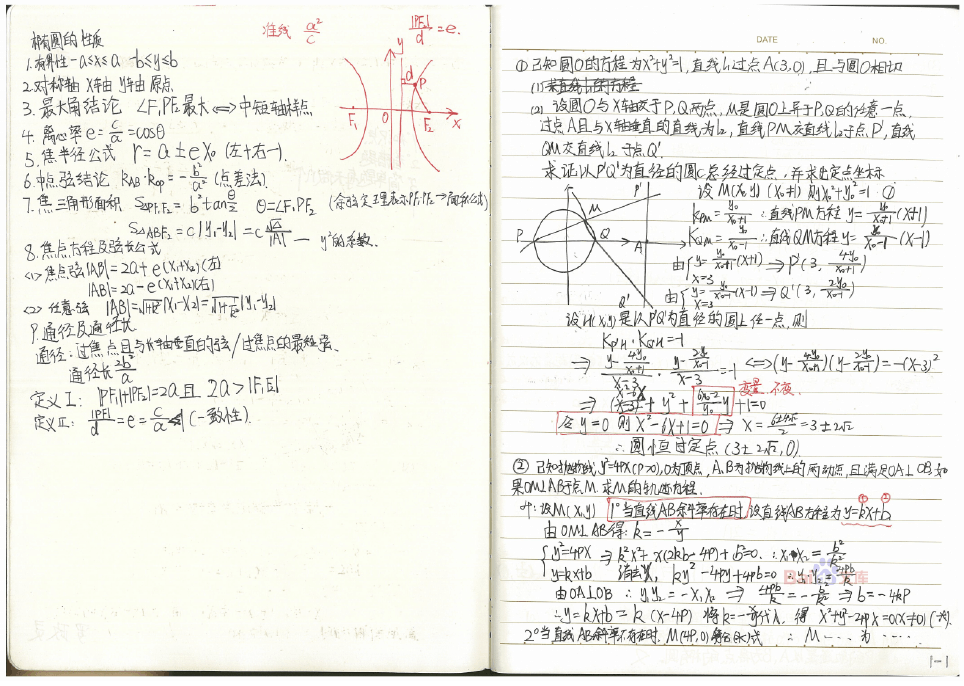 椭圆的性质
1.有界性 -a≤x≤a -b≤y≤b
2.对称轴 X轴 y轴 原点
3.最大角结论 ∠F₁PF₂最大⟺中短轴特点
4.离心率 e=c/a=cosθ
5.焦半径公式 r=a±ex₀ (左+右-).
6.中点弦结论 k_AB·k_OP=-b²/a² (点差法).
7.焦三角形面积 S△PF₁F₂=b²tanθ/2 θ=∠F₁PF₂
S△ABF₂=c|y₁-y₂|=c√Δ/|A| — y²的系数.
8.焦点方程及弦长公式
<1>焦点弦|AB|=2a+e(X₁+X₂)(左)
|AB|=2a-e(X₁+X₂)(右)
<2>任意弦 |AB|=√1+k²|X₁-X₂|=√1+1/k²|y₁-y₂|
9.通径及通径长
通径:过焦点且与X轴垂直的弦/过焦点的最短弦.
通径长2b²/a
定义I: |PF₁|+|PF₂|=2a且 2a>|F₁F₂|
定义II: |PF|/d=e=c/a<1 (一致性).
准线 a²/c
|PF₂|/d=e.
y
d
P
F₁
O
F₂
x
DATE NO.
①已知圆O的方程为x²+y²=1,直线l₁过点A(3,0),且与圆O相切
(1)求直线l₁的方程
(2) 设圆O与X轴交于P,Q两点,M是圆O上异于P,Q的任意一点,
过点A且与X轴垂直的直线为l₂,直线PM交直线l₂于点P',直线
QM交直线l₂于点Q'
求证以P'Q'为直径的圆C总经过定点,并求出定点坐标
设M(X₀,y₀) (X₀≠1) 则X₀²+y₀²=1 ①
k_PM=y₀/(X₀+1) ∴直线PM方程 y=y₀/(X₀+1)(X+1)
K_QM=y₀/(X₀-1) ∴直线QM方程 y=y₀/(X₀-1)(X-1)
由{y=y₀/(X₀+1)(X+1) X=3 ⇒P'(3, 4y₀/(X₀+1))
由{y=y₀/(X₀-1)(X-1) X=3 ⇒Q'(3, 2y₀/(X₀-1))
P
M
Q
A
P'
Q'
设H(X,y)是以P'Q'为直径的圆上任一点,则
K_P'H·K_Q'H=-1
⇒ (y-4y₀/(X₀+1))/(X-3)·(y-2y₀/(X₀-1))/(X-3)=-1 ⟺(y-4y₀/(X₀+1))(y-2y₀/(X₀-1))=-(X-3)²
变量 不变
+y²+(6X₀-2)/y₀ y+1=0
令y=0 则X²-6X+1=0 ⇒X=(6±4√2)/2=3±2√2
∴圆恒过定点(3±2√2,0).
②已知抛物线y²=4PX(P>0),O为顶点,A,B为抛物线上的两动点,且满足OA⊥OB,如
果OM⊥AB于点M.求M的轨迹方程.
设M(X,y) 1°当直线AB斜率存在时,设直线AB方程为y=kX+b.
① ②
由OM⊥AB得:k=-x/y
{y²=4PX ⇒k²X²+X(2kb-4P)+b²=0. ∴X₁X₂=b²/k²
y=kX+b 消去X, ky²-4Py+4Pb=0 ∴y₁y₂=4Pb/k
由OA⊥OB ∴y₁y₂=-X₁X₂ ⇒4Pb/k=-b²/k²⇒b=-4kP
∴y=kX+b=k(X-4P) 将k=-x/y代入,得 X²+y²-4PX=0(X≠0)
2°当直线AB斜率不存在时,M(4P,0)
∴ M---- 为 ----.
|-|